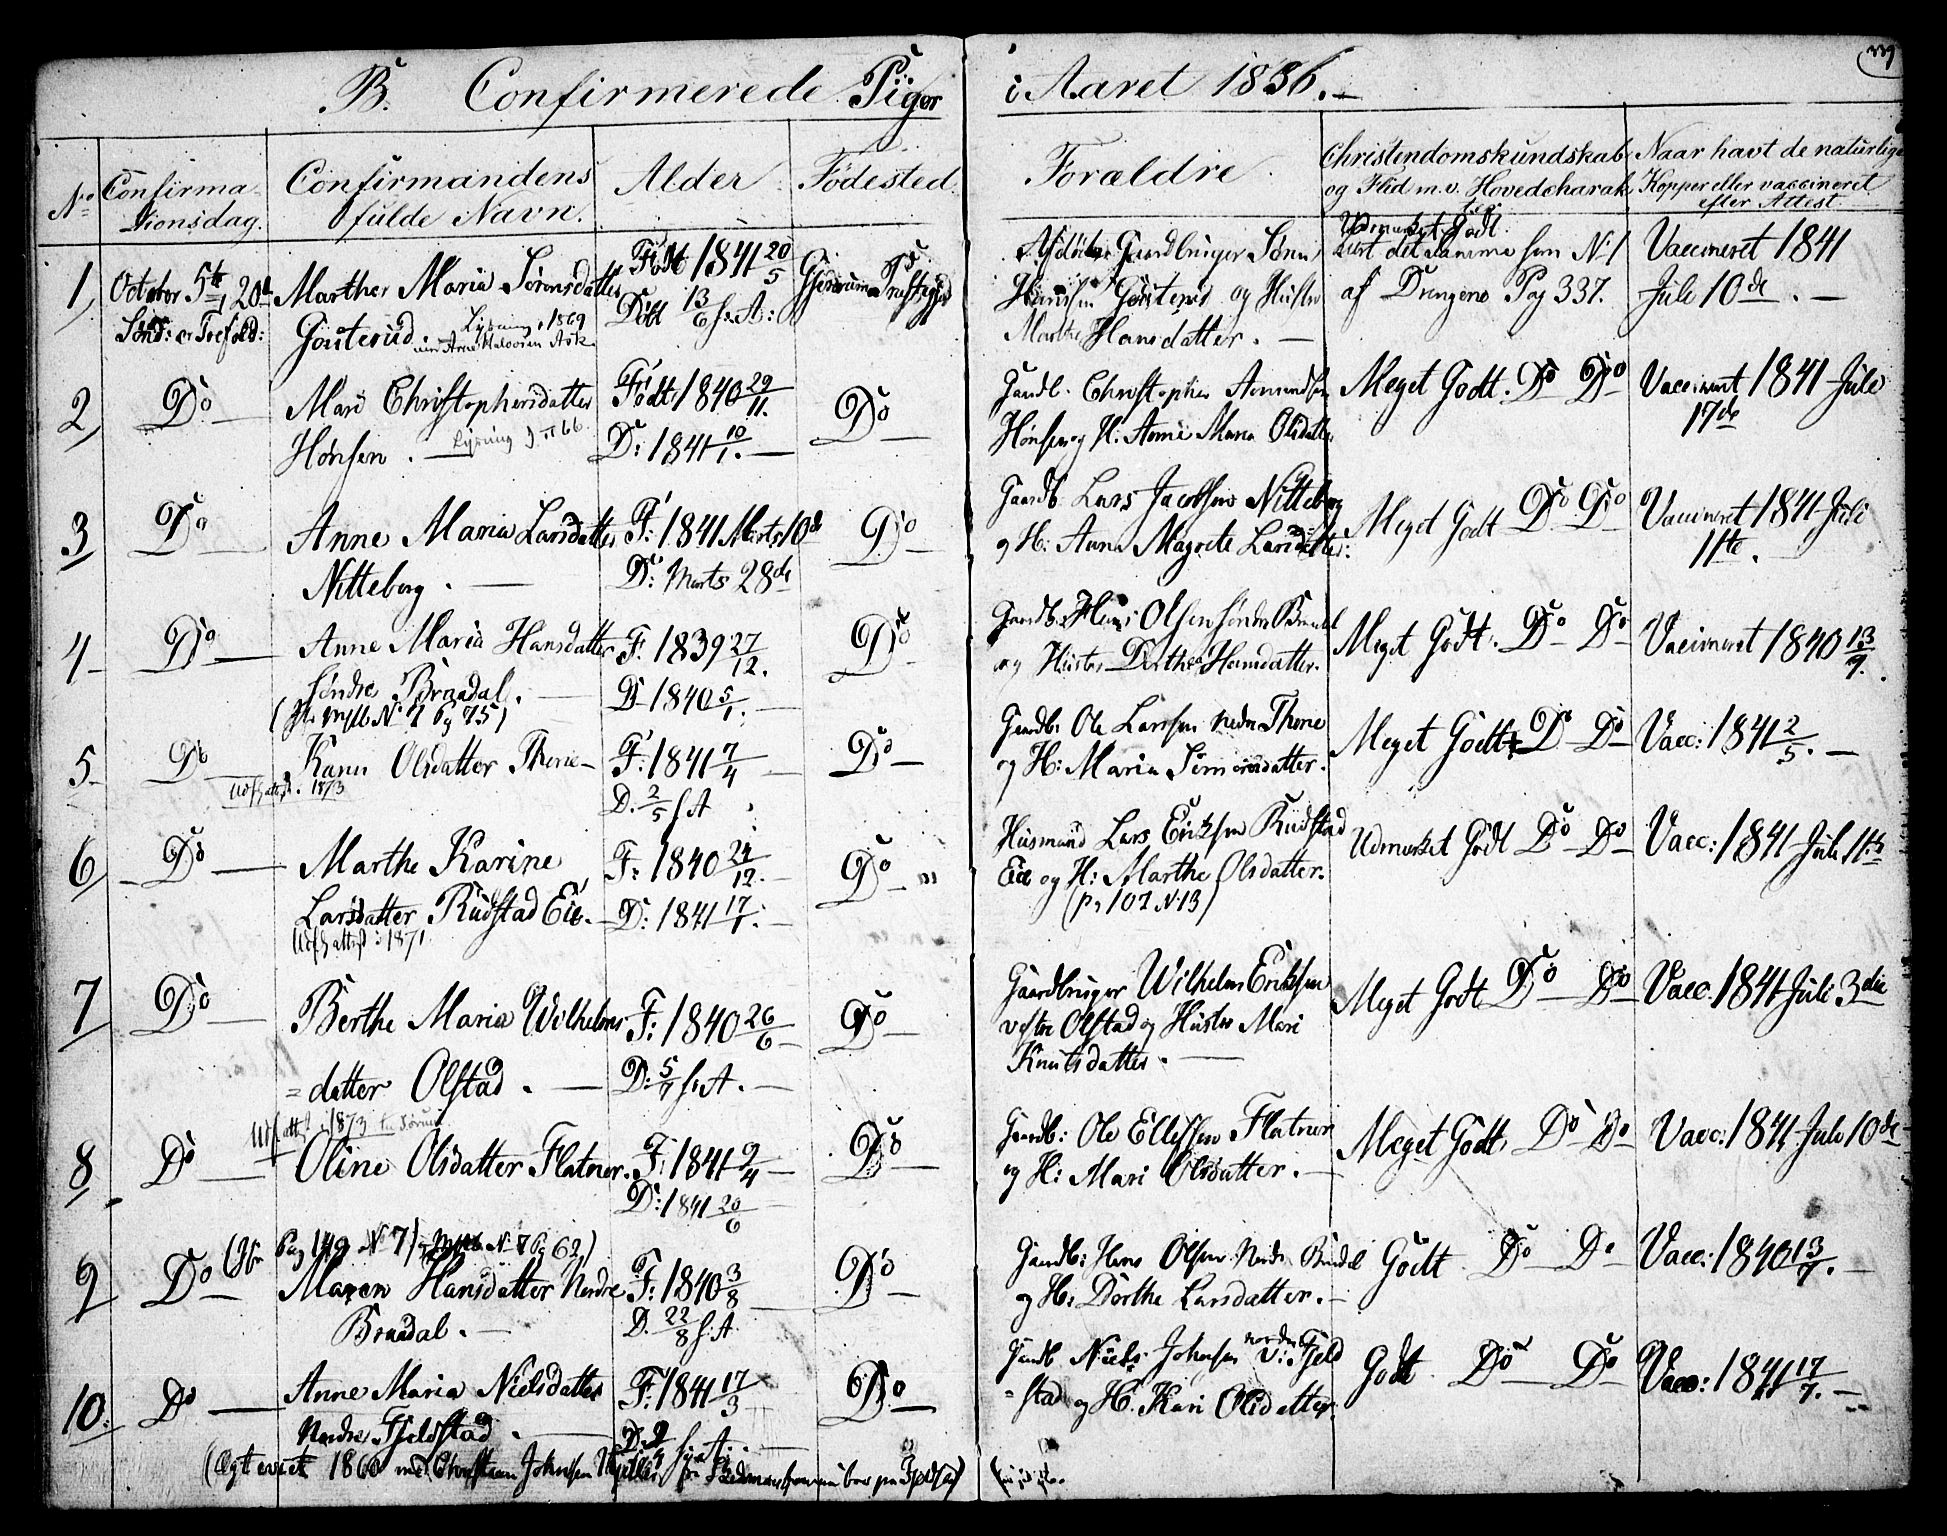 B. Confirmerede Piger i Aaret 1856.
No Confirmationsdag. Confirmandens fulde Navn. Alder Fødested. Forældre Christendomskundskab og Flid m.v. Hovedcharakteer Naar havt de naturlige Kopper eller vaccineret efter Attest
1, October 5te, 20de Marthe Maria Sørensdatter Født 1841 20/5 Gjerdrums Præstegjeld Gaardbruger Søren Udmærket Godt Vaccineret 1841
Sønd: er Trefold: Gouterud Døbt 13/6 s: A: Hansen Gouterud og Hustru læst det samme som No 1 Juli 10de. —
Lysning i 1869 Marthe Hansdatter. — af Drengene Pag 337.
2, Do Mari Christophersdatter Født 1840 29/11. Do Gaardb. Christopher Amundsen Meget Godt. Do Do Vaccineret 1841 Juli
Hønsen. — Lysning D: 1841 10/1. — Hønsen og H: Anne Maria Olsdatter 17de
3, Do Anne Maria Larsdatter F: 1841 Marts 10de Do Gaardb. Lars Jacobsen Nitteberg Meget Godt Do Do Vaccineret 1841 Juli
Nitteberg. — D: Marts 28de og H: Anna Magrete Larsdatter: 11te.
4 Do Anne Maria Hansdatter F. 1839 27/12. Do Gaardb. Hans Olsen søndre Braadal Meget Godt. Do Do Vaccineret 1840 13/9.
Søndre Braadal. — D 1840 5/1. og Hustru Dorthea Hansdatter.
5 Do Karen Olsdatter Thene F: 1841 7/4 Do Gaardb. Ole Larsen nedre Thene Meget Godt Do Do Vacc: 1841 2/5. —
Udfl. attest. 1873 D. 2/5 s A og H: Maria Simensdatter.
6, Do Marthe Karine F: 1840 24/12. Do Husmand Lars Erichsen Rudstad Udmærket Godt Do Do Vacc: 1841 Juli 11te
Larsdatter Rudstad Eie. D: 1841 17/1. Eie og H: Marthe Olsdatter.
Udfl. attest i 1871 (Pag 107 N 13)
7, Do Berthe Maria Wilhelms- F: 1840 26/6 Do Gaardbruger Wilhelm Erichsen Meget Godt Do Do Vacc. 1841 Juli 3die
= datter Olstad. — D: 5/7 s. A. — vestre Olstad og Hustru Mari
Knutsdatter. —
Udfl. attest i 1873
8, Do Oline Olsdatter Flatner. F: 1841 9/4 Do Gaardb: Ole Ellefsen Flatner Meget Godt Do Do Vacc: 1841 Juli 10de
D: 1841 20/6 og H: Mari Olsdatter. —
9, Do Maren Hansdatter Nedre F: 1840 3/8 Do Gaardb: Hans Olsen Nedre Braadal Godt Do Do Vacc: 1840 13/7. —
Braadal. — D. 22/8 s: A. og H: Dorthe Larsdatter. —
10. Do Anne Maria Nielsdatter F: 1841 17/3 Do Gaardb. Niels Johnsen Fjeld Godt Do Do Vacc: 1841 17/7. —
Nordre Fjeldstad. — = stad og H. Kari Olsdatter.
(Ægteviet 1860 med Christian Johnsen